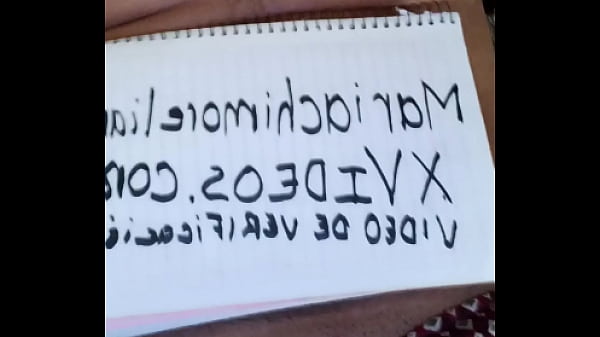 Mariachimorelian
XVIDEOS.COM
VIDEO DE VERIFicació